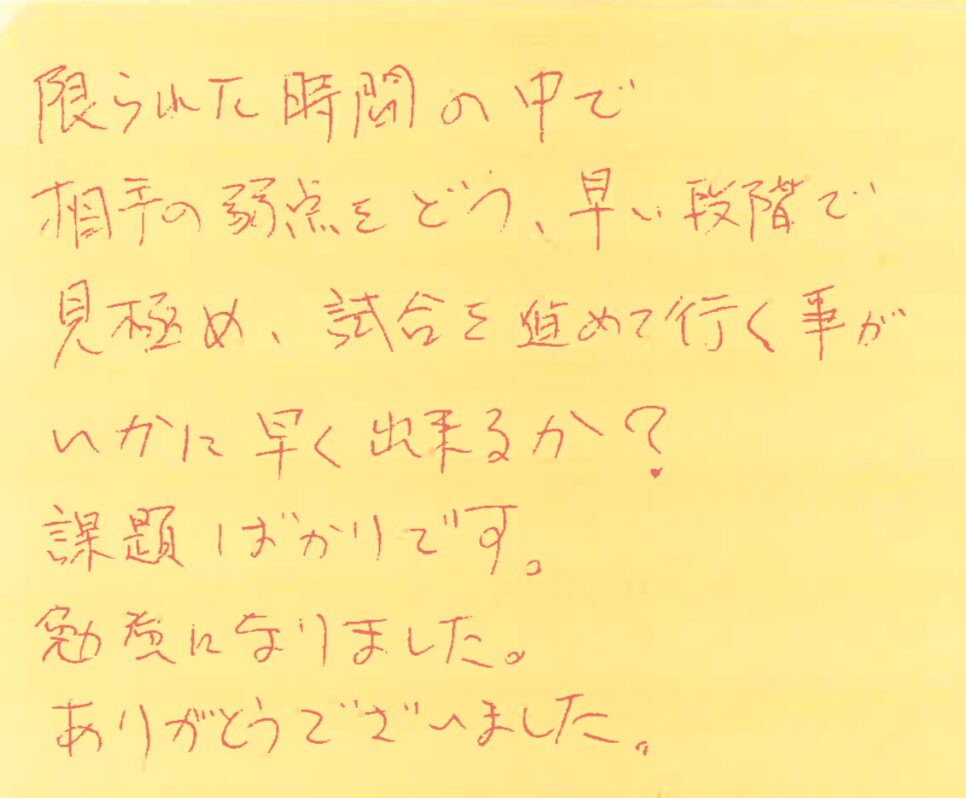 限られた時間の中で
相手の弱点をどう、早い段階で
見極め、試合を進めて行く事が
いかに早く出来るか？
課題ばかりです。
勉強になりました。
ありがとうございました。